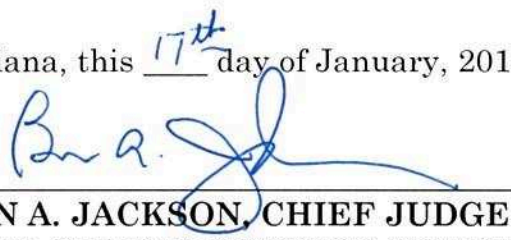 iana, this 17th day of January, 201
N A. JACKSON, CHIEF JUDGE